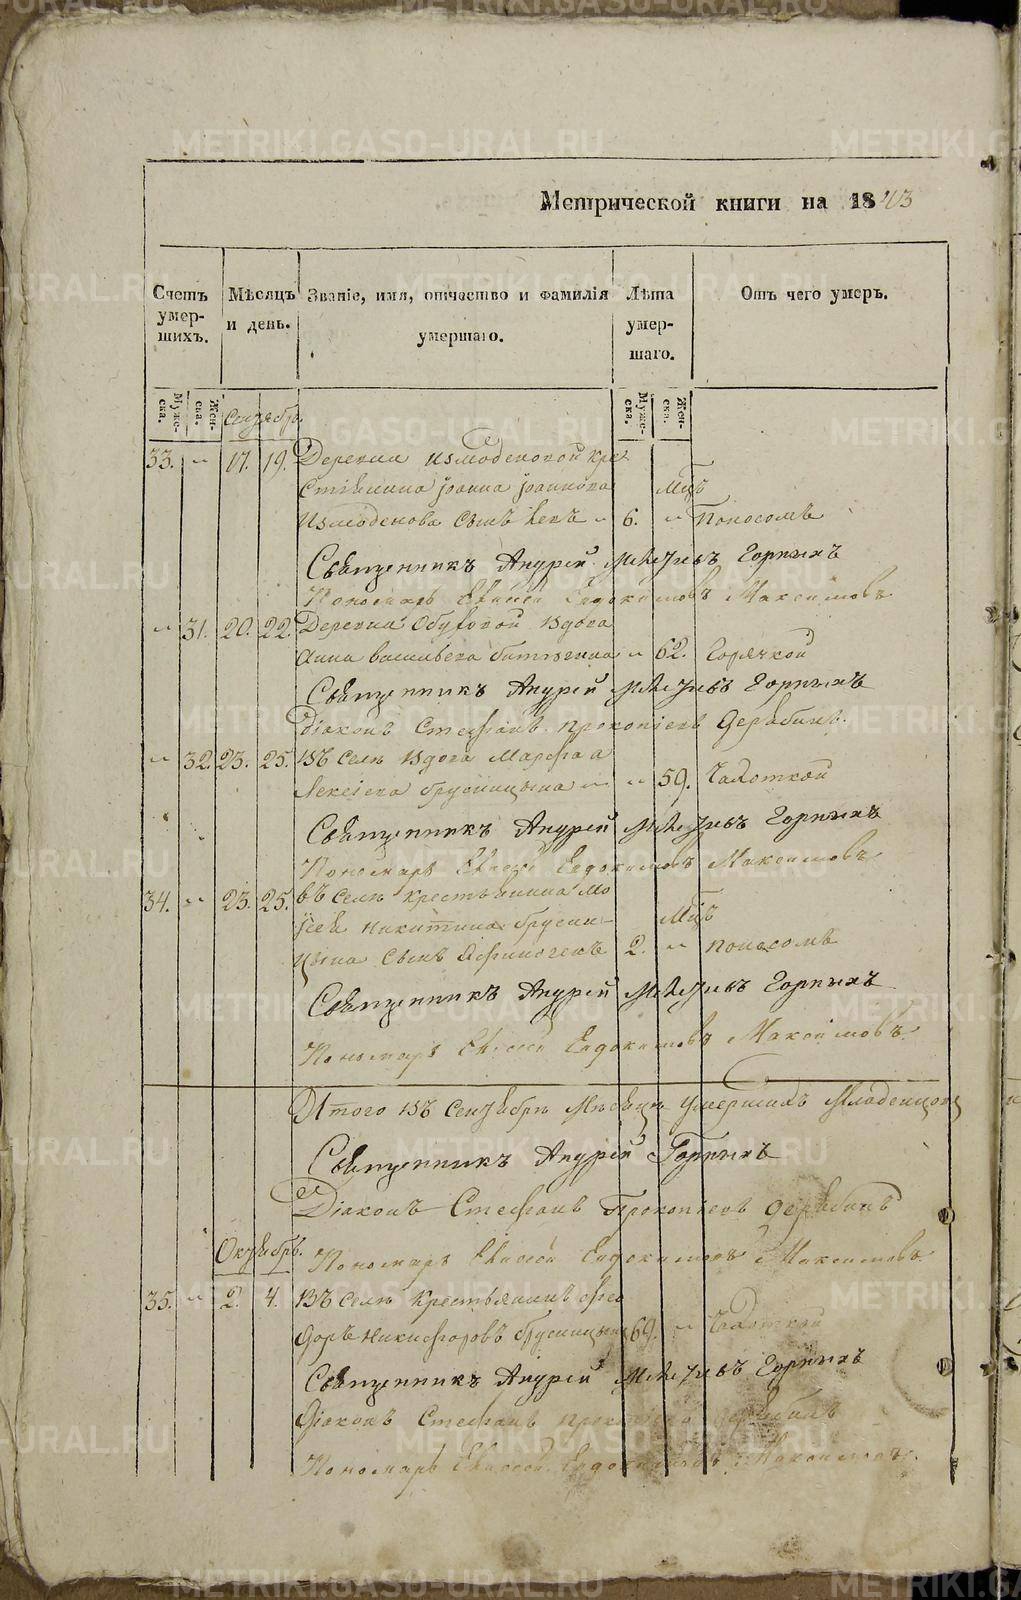 Метрической книги на 1843
Счетъ умершихъ.
Мѣсяцъ и день.
Званіе, имя, отчество и фамилія умершаго.
Лѣта умершаго.
Отъ чего умеръ.
Мужеска. Женска. Сентябрь Мужеска. Женска.
33. „ 17. 19. Деревни Измоденовой кре
стьянина Іоанна Іоаннова Мцъ
Измоденова сынъ „ 6. „ Поносомъ
Священникъ Андрей Горныхъ
Пономарь Евсей Евдокимовъ Максимовъ
„ 31. 20. 22. Деревни Обуховой вдова
Анна Васильева „ 62. Горячкой
Священникъ Андрей Горныхъ
Діаконъ Стефанъ Прокопіевъ Дерябинъ
„ 32. 23. 25. Въ селѣ вдова Марфа А
лексіева Брусницына „ „ 59. Чахоткой
Священникъ Андрей Горныхъ
Пономарь Евсей Евдокимовъ Максимовъ
34. „ 23. 25. Въ селѣ крестьянина Мо
ѵсея Никитина Брусни- Мцъ
цына сынъ Афиногенъ 2. „ поносомъ
Священникъ Андрей Горныхъ
Пономарь Евсей Евдокимовъ Максимовъ
Итого въ Сентябрѣ мѣсяцѣ умершихъ младенцовъ
Священникъ Андрей Горныхъ
Діаконъ Стефанъ Прокопіевъ Дерябинъ
Октябрь.
Пономарь Евсей Евдокимовъ Максимовъ
35. „ 2. 4. Въ селѣ крестьянинъ Фео
доръ Никифоровъ Брусницынъ 69. „ Чахоткой
Священникъ Андрей Горныхъ
Діаконъ Стефанъ Прокопіевъ Дерябинъ
Пономарь Евсей Евдокимовъ Максимовъ
METRIKI.GASO-URAL.RU